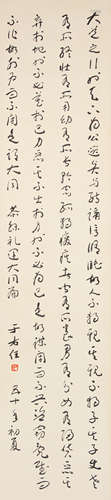 大道之行也天下為公選賢與能講信修睦故人不獨親其親不獨子其子使老
有所終壯有所用幼有所長矜寡孤獨廢疾者皆有所養男有分女有歸貨惡其
棄於地也不必藏於己力惡其不出於身也不必為己是故謀閉而不興盜竊亂賊而
不作故外戶而不閉是謂大同 恭錄禮運大同篇 于右任
五十年初夏